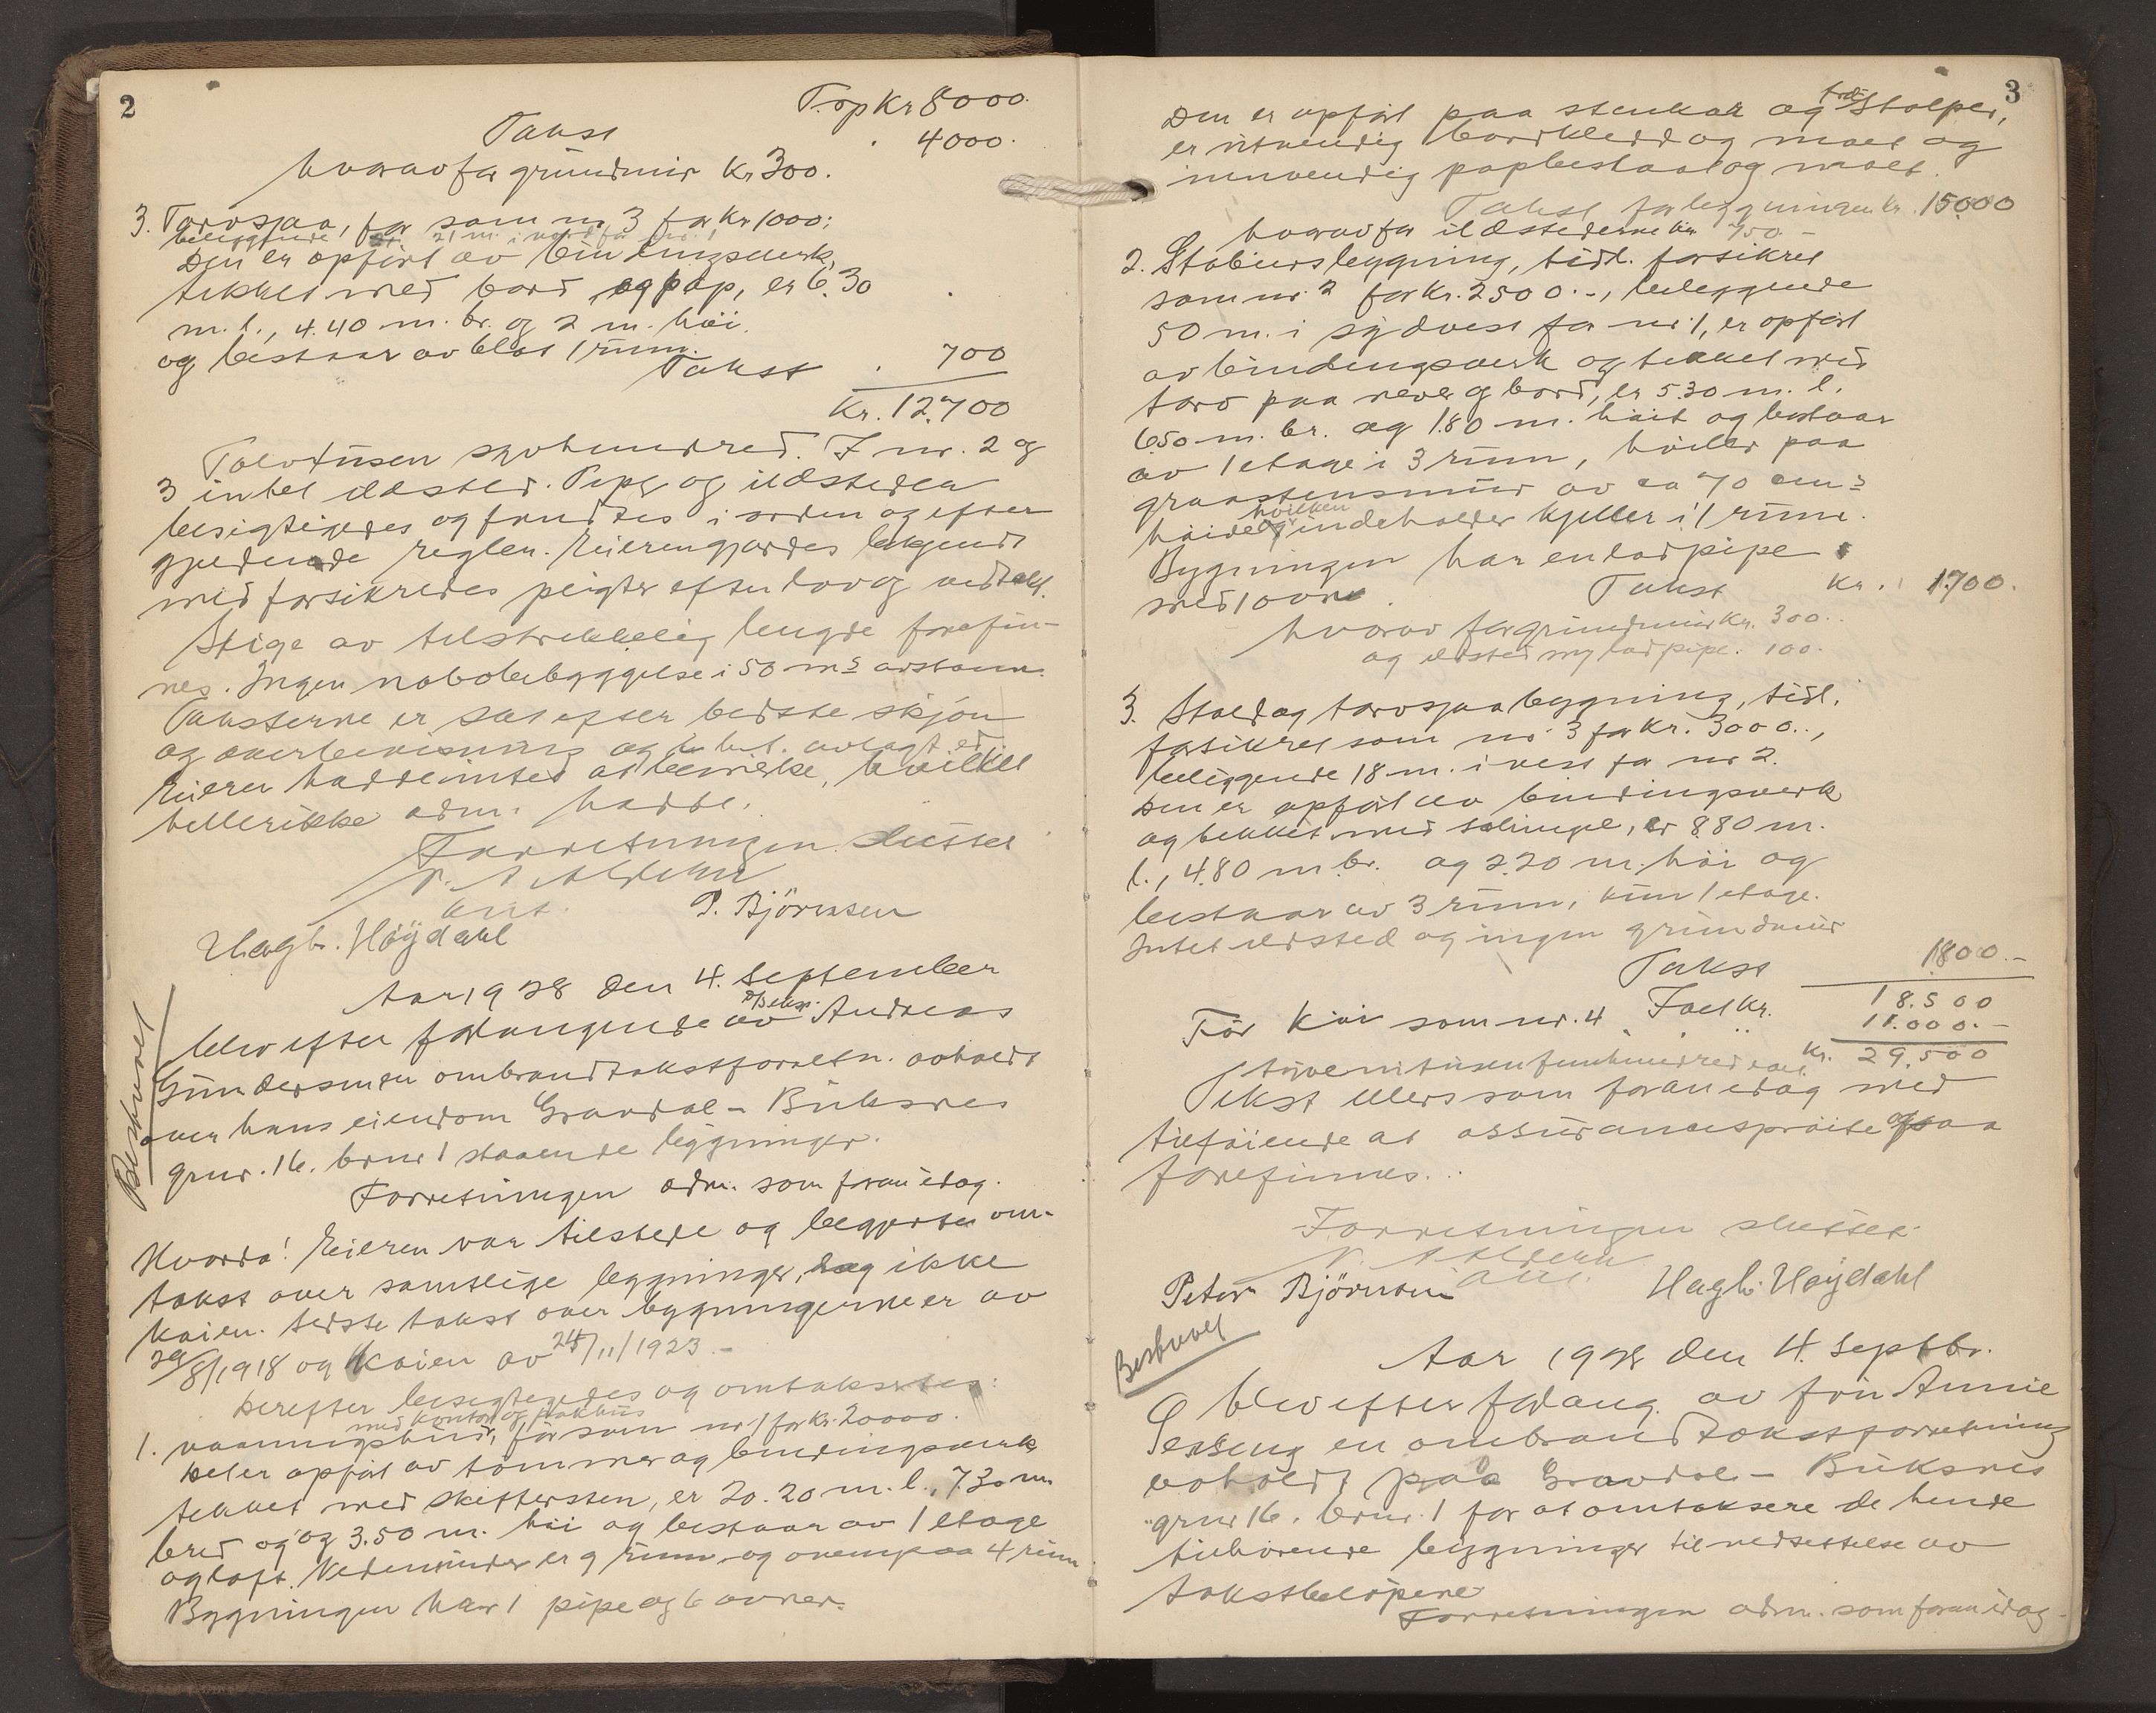 2
T.op Kr 8000.
Takst . 4000.
hvorav for grundmur Kr 300.
3. Torvsjaa, før som nr. 3 for Kr 1000;
beliggende 21 m. i nord for nr. 1
Den er opført av bindingsverk,
tekket med bord og pap, er 6.30
m. l., 4.40 m. br. og 2 m. høi.
og bestaar av blot 1 rum.
Takst . 700
Kr. 12.700
Tolvtusen syvhundred. I nr. 2 og
3 intet ildsted. Piper og ildsteder
besigtigedes og fandtes i orden og efter
gjeldende regler. Eieren gjordes bekjendt
med forsikredes pligter efter lov og vedtekt.
Stige av tilstrekkelig lengde forefin-
nes. Ingen nabobebyggelse i 50 ms avstann.
Taksterne er sat efter bedste skjøn
og overbevisning og i h. t. avlagt ed.
Eieren hadde intet at bemerke, hvilket
heller ikke adm. hadde.
Forretningen sluttet
P. Björnsen
Hagb. Höydahl
Bestuvet
Aar 1928 den 4. September
blev efter forlangende av Andreas
Gundersen en ombrandtakstforretn. avholdt
over hans eiendom Gravdal - Buksnes
grnr. 16. brnr 1 staaende bygninger.
Forretningen adm. som foran idag.
Hvorda! Eieren var tilstede og begjerte om-
takst over samtlige bygninger, og ikke
kaien. Sidste takst over bygningerne er av
29/8/1918 og kaien av 24/11/1923.-
Derefter besigtigedes og omtakseres:
med kontor og pakhus
1. vaaningshus, før som nr 1 for kr. 20000.
Det er opført av tømmer og bindingsverk
tekket med skiffersten, er 20.20 m. l., 7.30 m
bred og og 3.50 m. høi og bestaar av 1 etage
og loft. Nedenunder er 9 rum og ovenpaa 4 rum
Bygningen har 1 pipe og 6 ovner.
3
Den er opført paa stenkar og træ Stolper,
er utvendig bordkledd og malt og
innvendig papbeslaat og malt.
Takst for bygningen kr. 15000
hvorav for ildstederne kr 750.-
2. Stabursbygning, tidl. forsikret
som nr. 2 for Kr. 2500.-, beliggende
50 m. i sydvest for nr. 1, er opført
av bindingsverk og tekket med
torv paa never og bord, er 5.30 m. l.
6.50 m. br. og 1.80 m. høit og bestaar
av 1 etage i 3 rum, hviler paa
graastensmur av ca 70 cm's
høide hvilken indeholder kjeller i 1 rum.
Bygningen har en ladpipe
med 1 ovn. Takst Kr. 1.700.
hvorav for grundmur Kr. 300..
og ildsted og ladpipe. 100.
3. Stald og torvsjaabygning, tidl.
forsikret som nr. 3 for Kr. 3000..,
beliggende 18 m. i vest for nr 2.
Den er opført av bindingsverk
og tekket med, er 8.80 m.
l., 4.80 m. br. og 2.20 m. høi og
bestaar av 3 rum, kun 1 etage.
Intet ildsted og ingen grundmur
Takst 1.800.-
Ialt Kr. 18.500
Før Kai som nr. 4 . .. 11.000.-
Kr. 29.500
tyvenitusenfemhundred
Tekst ellers som foran idag med
tilføiende at assuransesprøite ogsaa
forefinnes.
Forretningen sluttet.
Peter Björnsen Hagb. Höydahl
Bestuvet
Aar 1928 den 4. Septbr.
blev efter forlang. av fru Annie
en ombrandtakstforretning
avholdt paa Gravdal - Buksnes
grnr 16. brnr. 1 for at omtaksere de hende
tilhørende bygninger til nedsettelse av
takstbeløpene
Forretningen adm. som foran idag.